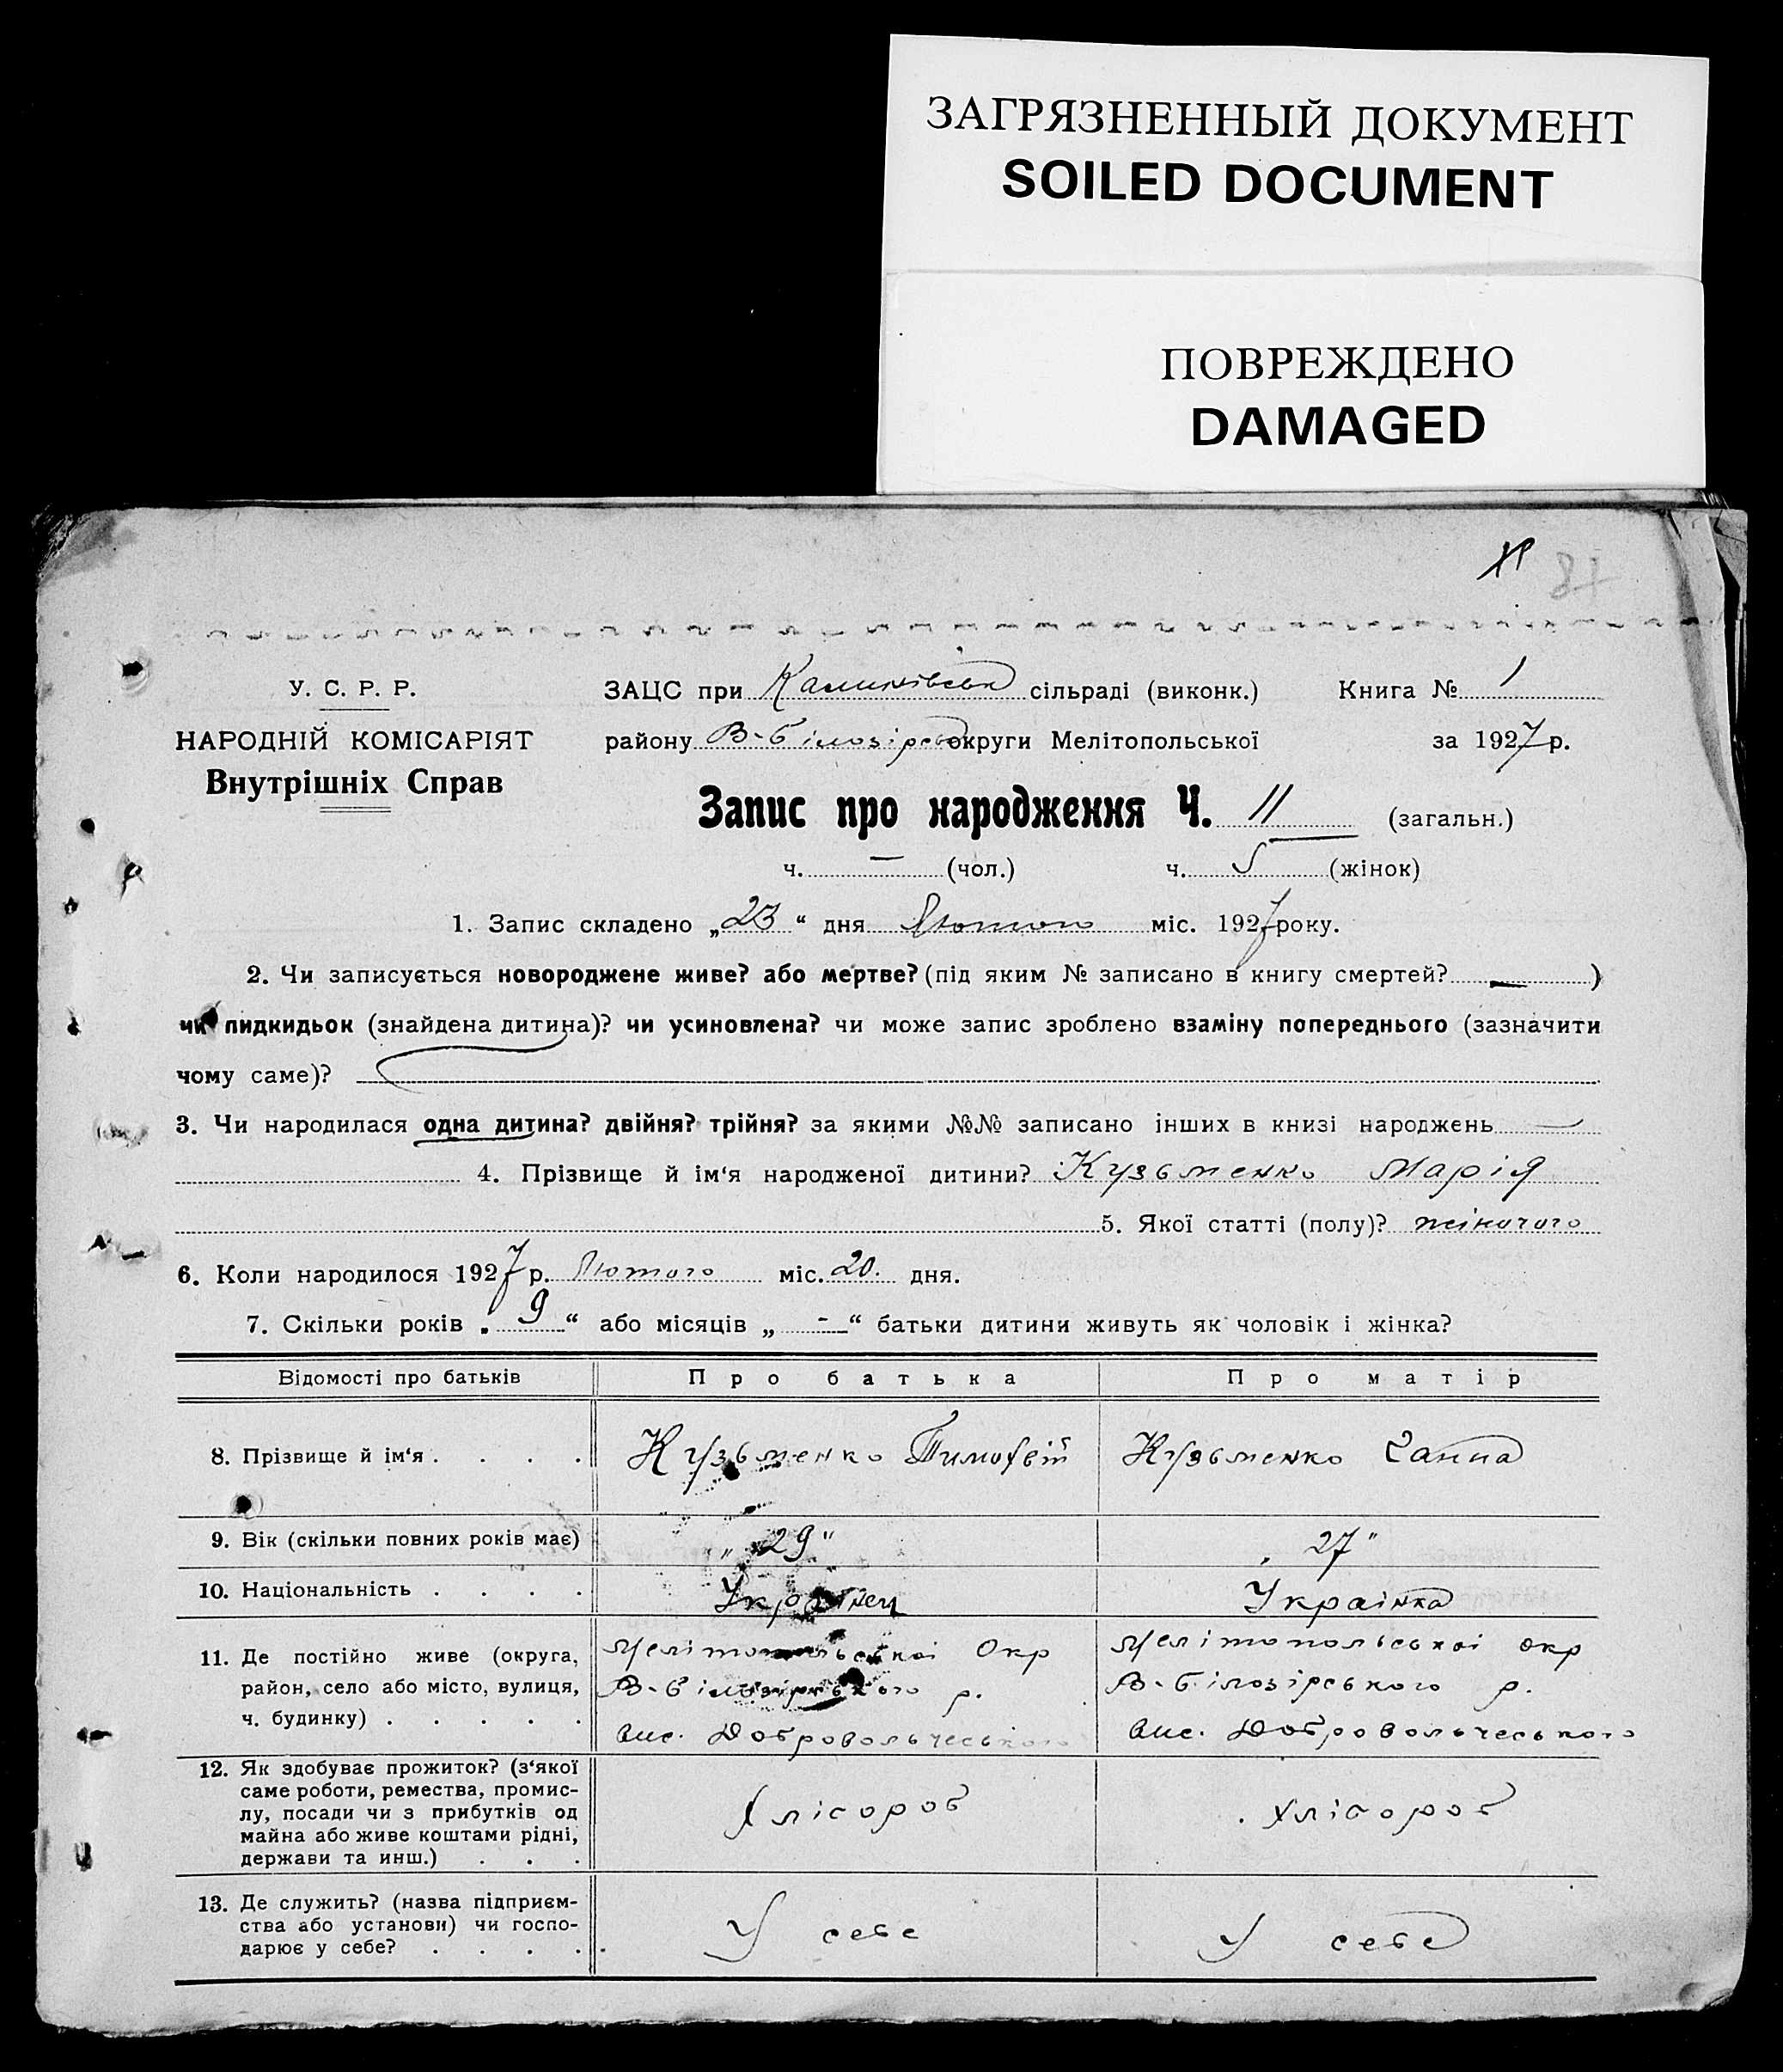 ЗАГРЯЗНЕННЫЙ ДОКУМЕНТ
SOILED DOCUMENT
ПОВРЕЖДЕНО
DAMAGED
81
У. С. Р. Р.
НАРОДНІЙ КОМІСАРІЯТ
Внутрішніх Справ
ЗАЦС при Калинівськ сільраді (виконк.) Книга № 1
району В-Білозірськ округи Мелітопольської за 1927 р.
Запис про народження Ч. 11 (загальн.)
ч. — (чол.) ч. 5 (жінок)
1. Запис складено „23“ дня Лютого міс. 1927 року.
2. Чи записується новороджене живе? або мертве? (під яким № записано в книгу смертей? — )
чи пидкидьок (знайдена дитина)? чи усиновлена? чи може запис зроблено взаміну попереднього (зазначити
чому саме)?
3. Чи народилася одна дитина? двійня? трійня? за якими №№ записано інших в книзі народжень —
4. Прізвище й ім‘я народженої дитини? Кузьменко Марія
5. Якої статті (полу)? жіночого
6. Коли народилося 1927 р. Лютого міс. 20. дня.
7. Скільки років „ 9 “ або місяців „ - “ батьки дитини живуть як чоловік і жінка?
Відомості про батьків Про батька Про матір
8. Прізвище й ім‘я . . . . Кузьменко Тимофій Кузьменко Ганна
9. Вік (скільки повних років має) „ 29 " „ 27 "
10. Національність . . . . Українец Українка
11. Де постійно живе (округа,
район, село або місто, вулиця,
ч. будинку) . . . . .
Мелітопольськоі Окр
В-Білозірського р.
вис. Добровольчеського
Мелітопольськоі окр
В-Білозірського р.
вис. Добровольчеського
12. Як здобуває прожиток? (з‘якої
саме роботи, ремества, промис-
лу, посади чи з прибутків од
майна або живе коштами рідні,
держави та инш.) . . .
Хлібороб
Хлібороб
13. Де служить? (назва підприєм-
ства або установи) чи госпо-
дарює у себе? . . . . .
У себе
У себе